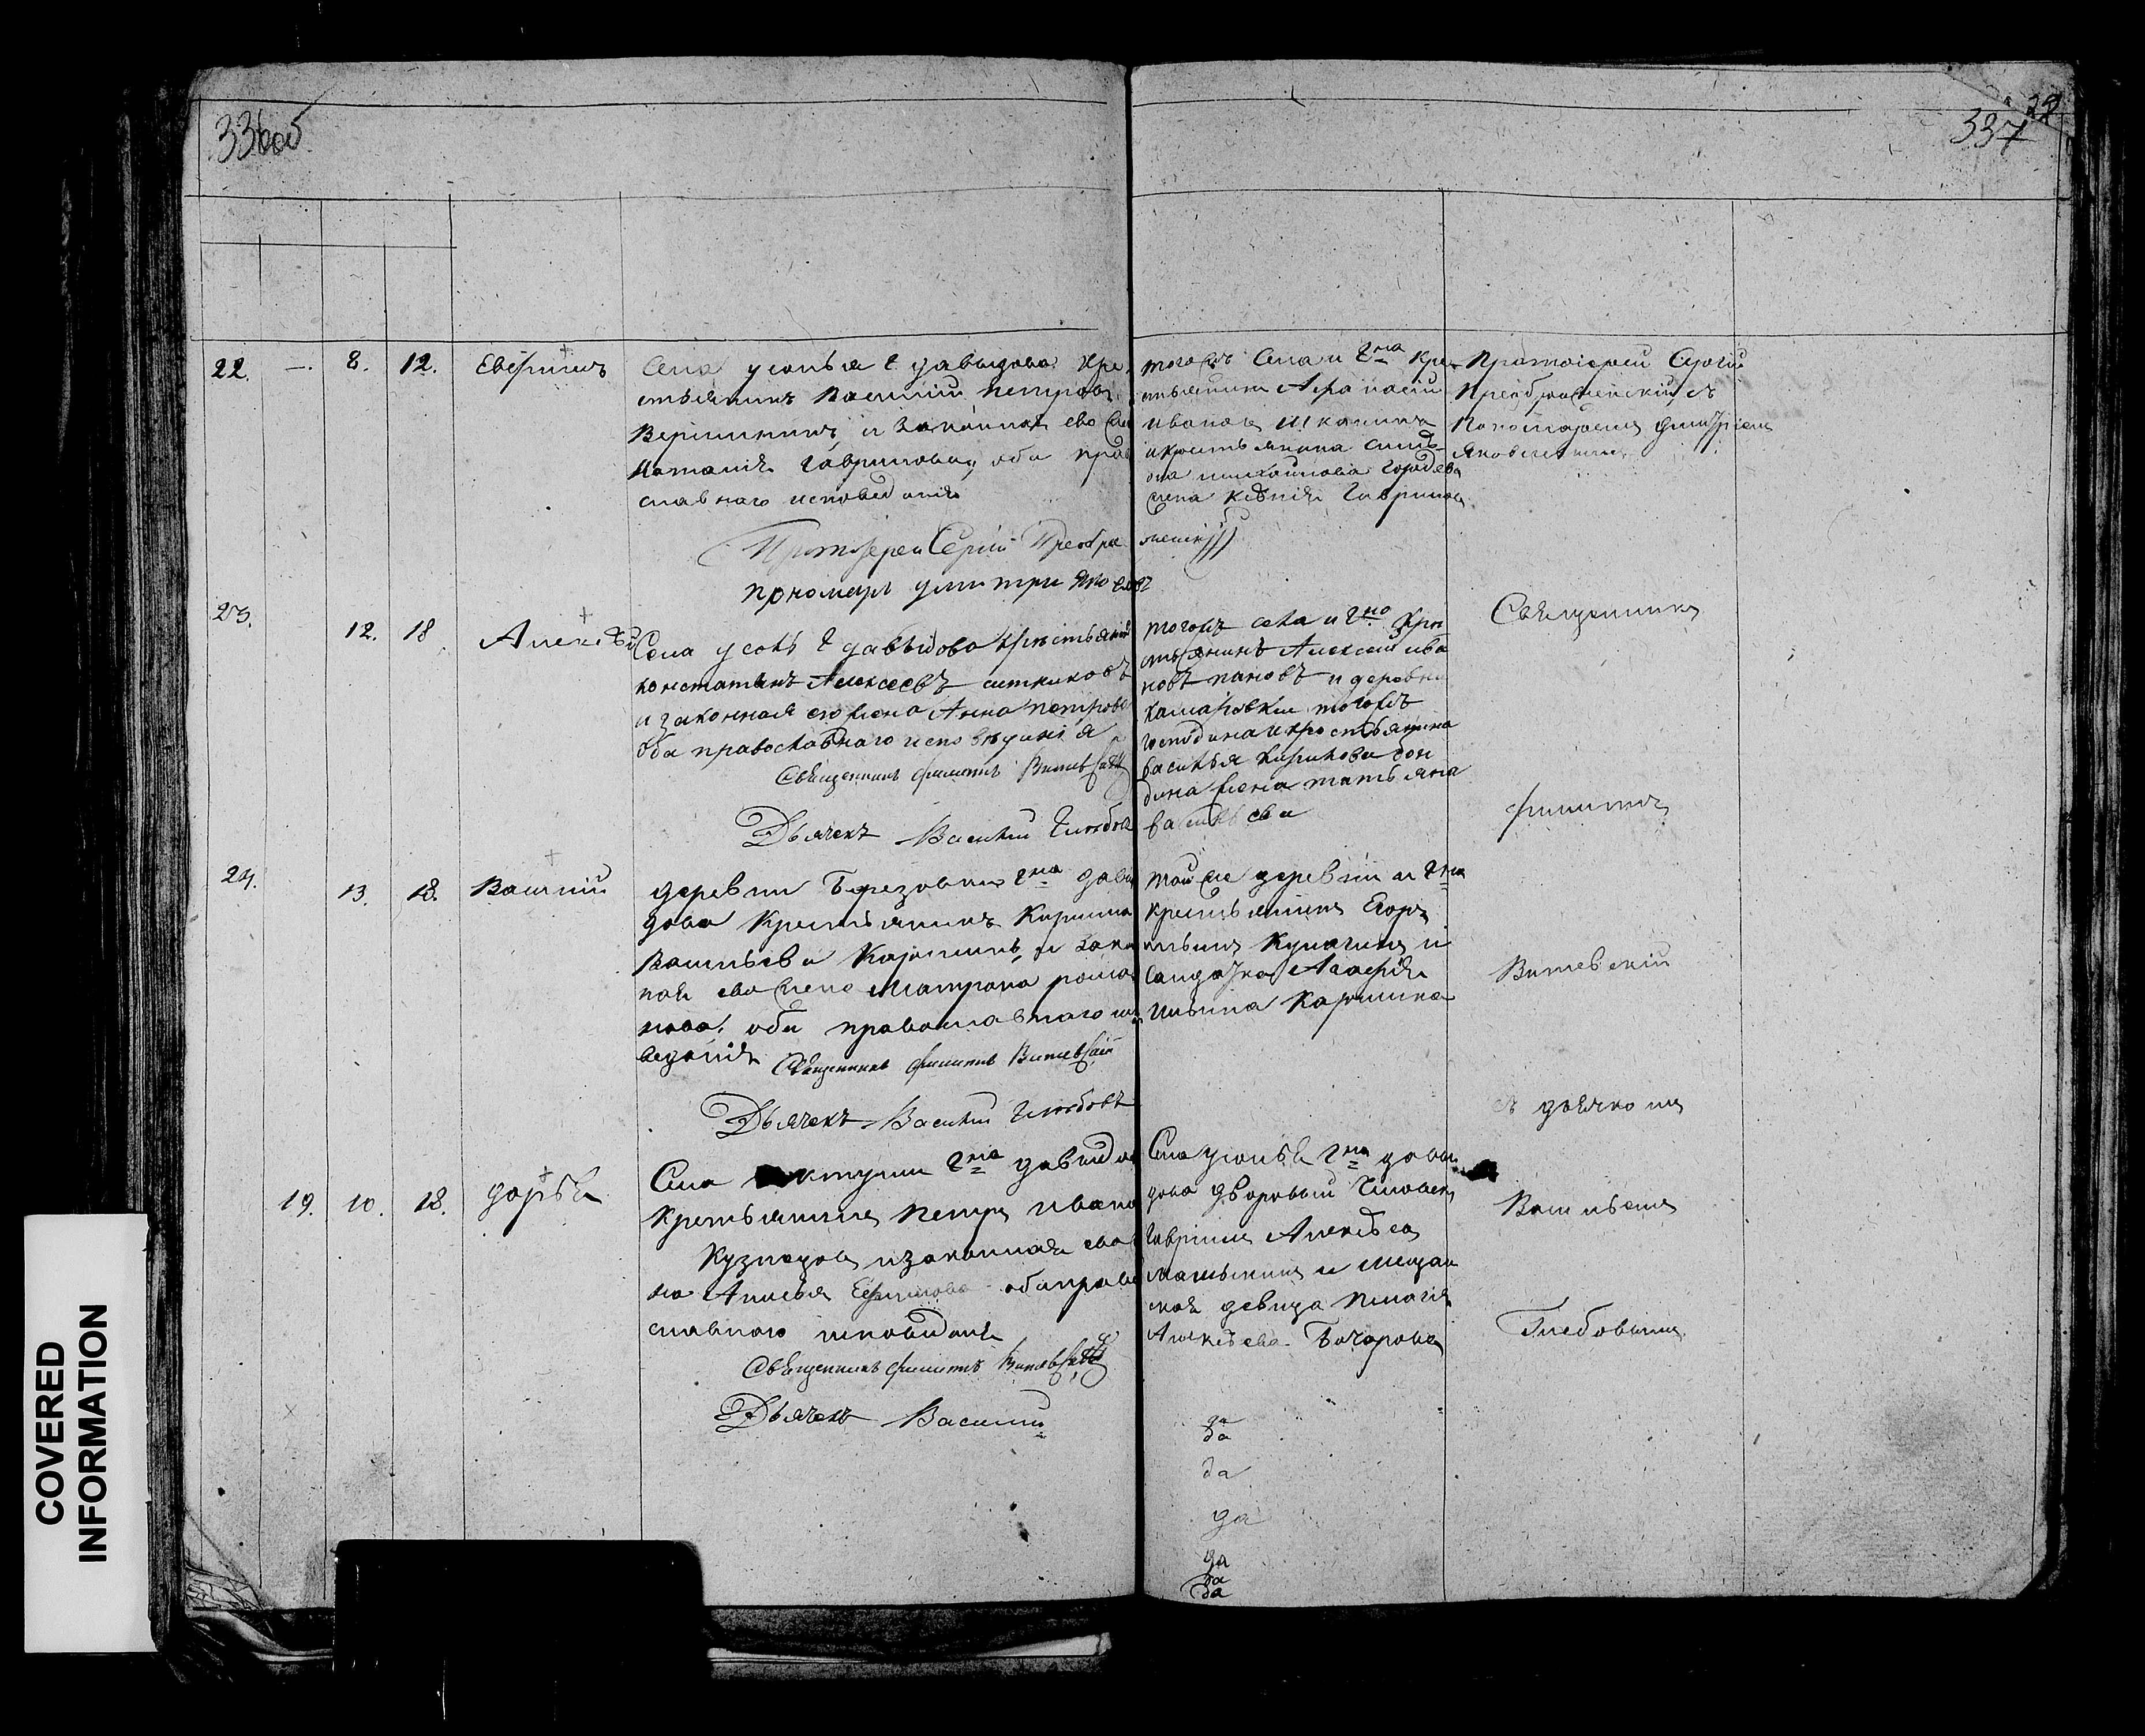 336об
337
22
22. —. 8. 12. Евфимъ
Села усолья Г давыдова кре-
стьянинъ Василий Петровъ
Вершининъ, и законная его же
Наталия Гаврилова, оба право
славнаго исповедания
Протоиерей Сергий Преобра
женский
пономарь дмитри Яковлевъ
того жъ села и Гна кре-
стьянинъ Афанасий
Ивановъ
и крестьянина
михайлова
жена Ксения Гаврилова
Протоиерей Сергий
Преображенский съ
Пономаремъ Дмитриемъ
23. 12. 18. Алексѣй
Села усолья Г давыдова крестьянинъ
константинъ Алексеевъ ситниковъ
и законная его жена Анна петрова
оба православнаго исповѣдания
Священникъ филиппъ Витевский
Дьячекъ Василий Глебовъ
тогожъ села и Гно кре
стьянинъ Алексей ива
новъ пановъ и деревни
камаровки тогожъ
господина крестьянина
василья Кирилова
жена татьяна
васильева
Священникъ
филиппъ
24. 13. 18. Василий
деревни Березовки Гна давы
дова Крестьянинъ Кирилла
Васильевъ Карпинъ, и закон
ная его жена Матрона рома
нова. оба православнаго испо
ведания Священникъ филиппъ Витевский
Дьячекъ Василий Глебовъ
той же деревни и Гна
крестьянинъ Егоръ
Ильинъ Кулагинъ и
салдатка Агафия
Ильина Карпина
Витевский
съ дьячкомъ
19. 10. 18. дарья
Села Гна давыдова
Крестьянинъ Петръ Ивано
Кузнецовъ и законная его же
на Анисья Ефимова оба право
славнаго исповедания
Священникъ филиппъ Витевский
Дьячекъ Василий
Села усолья Гна давы
дова дворовый человекъ
Гаврила Алексѣевъ
и мещан
ская девица Пелагия
Алексѣева Бочарова
Васильемъ
Глебовымъ
да
да
да
да
да
да
да
COVERED
INFORMATION